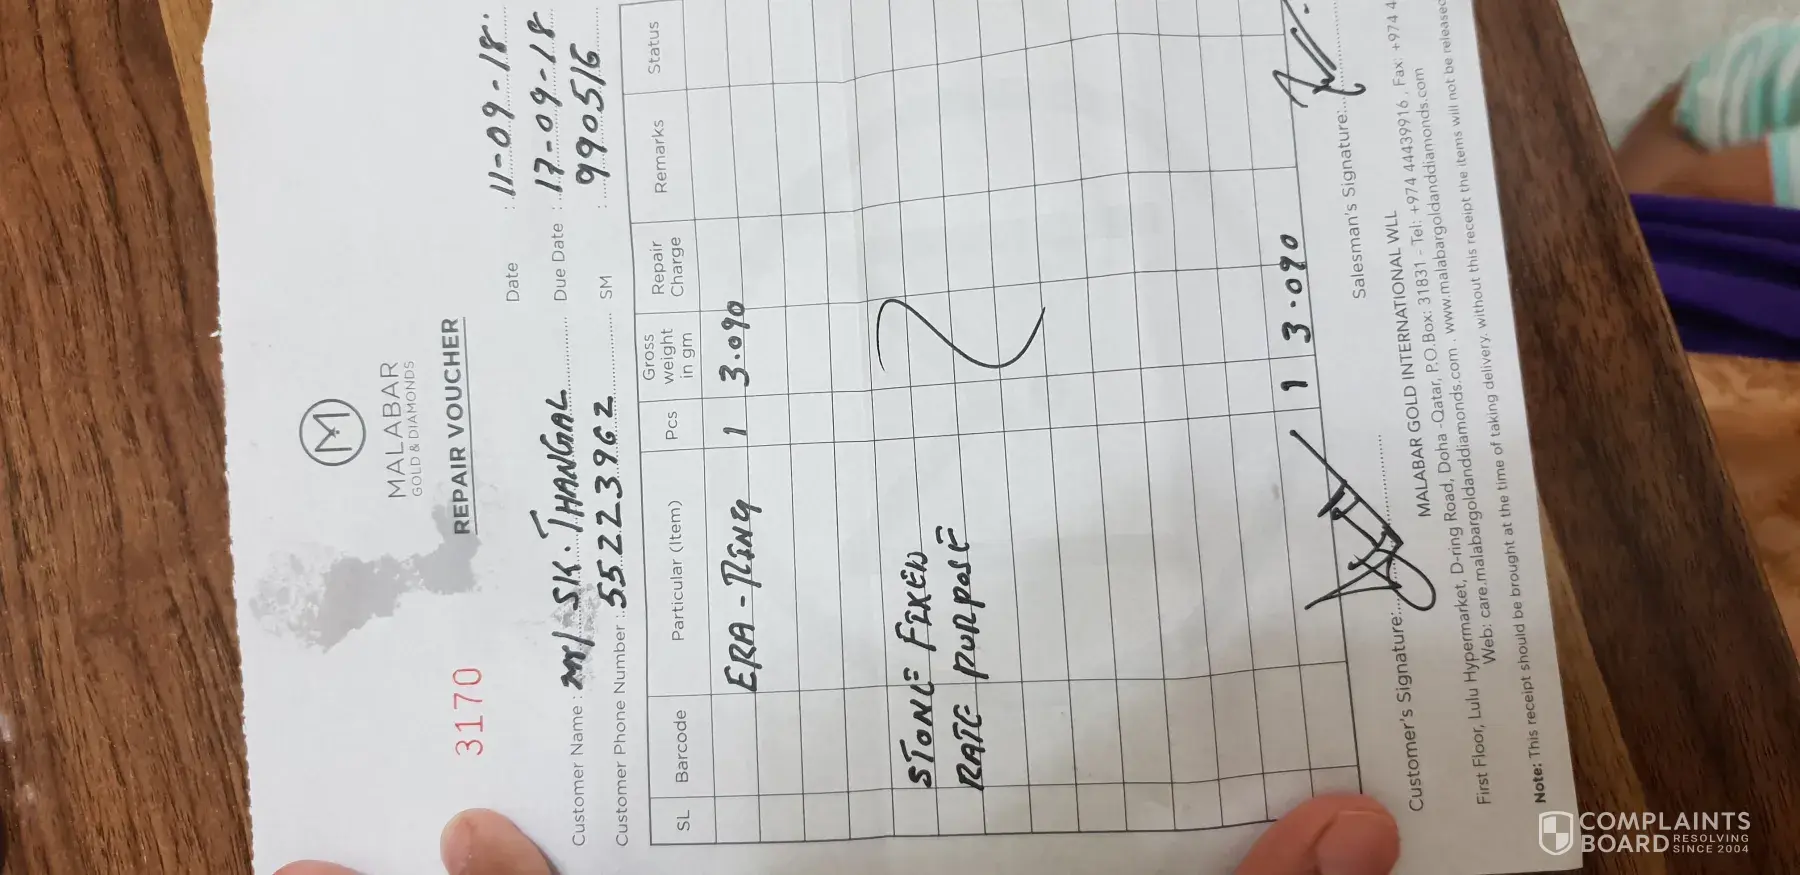 MALABAR
GOLD & DIAMONDS
3170 REPAIR VOUCHER
Date : 11-09-18.
Customer Name : Mr/ SK. THANGAL Due Date : 17-09-18
Customer Phone Number : 55223962 SM : 990516
SL Barcode Particular (Item) Pcs Gross weight in gm Repair Charge Remarks Status
ERA-RING 1 3.090
STONE FIXED
RATE PURPOSE
1 3.090
Customer's Signature: Salesman's Signature:
MALABAR GOLD INTERNATIONAL WLL
First Floor, Lulu Hypermarket, D-ring Road, Doha -Qatar, P.O.Box: 31831 - Tel: +974 44439916 , Fax: +974 4
Web: care.malabargoldanddiamonds.com . www.malabargoldanddiamonds.com
Note: This receipt should be brought at the time of taking delivery. without this receipt the items will not be released
COMPLAINTS
BOARD RESOLVING
SINCE 2004